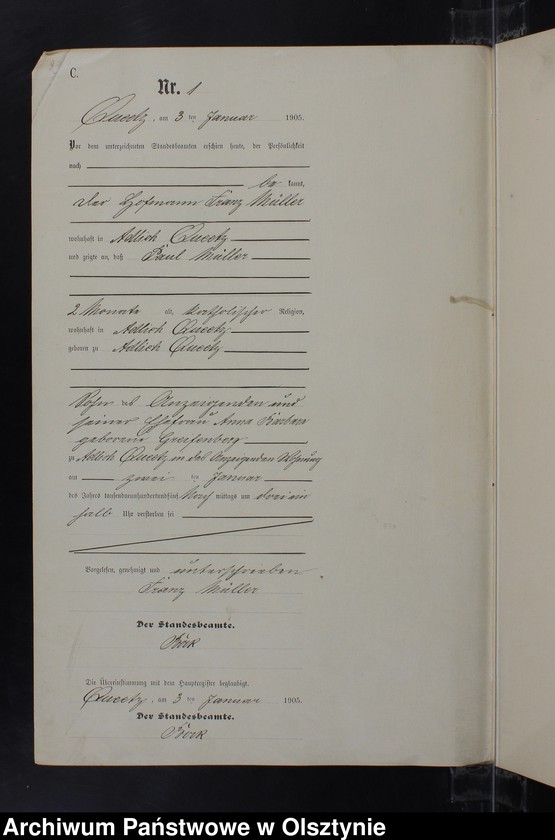 C.
Nr. 1
Queetz, am 3 ten Januar 1905.
Vor dem unterzeichneten Standesbeamten erschien heute, der Persönlichkeit
nach
be kannt,
der Hofmann Franz Müller
wohnhaft in Adlich Queetz
und zeigte an, daß Paul Müller
2 Monate alt, katholischer Religion,
wohnhaft in Adlich Queetz
geboren zu Adlich Queetz
Sohn des Anzeigenden und
seiner Ehefrau Anna Barbara
geborene Greifenberg
zu Adlich Queetz in des Anzeigenden Wohnung
am zwei ten Januar
des Jahres tausendneunhundertundfünf Nach mittags um drei ein
halb Uhr verstorben sei
Vorgelesen, genehmigt und unterschrieben
Franz Müller
Der Standesbeamte.
Die Übereinstimmung mit dem Hauptregister beglaubigt.
Queetz, am 3 ten Januar 1905.
Der Standesbeamte.
Archiwum Państwowe w Olsztynie